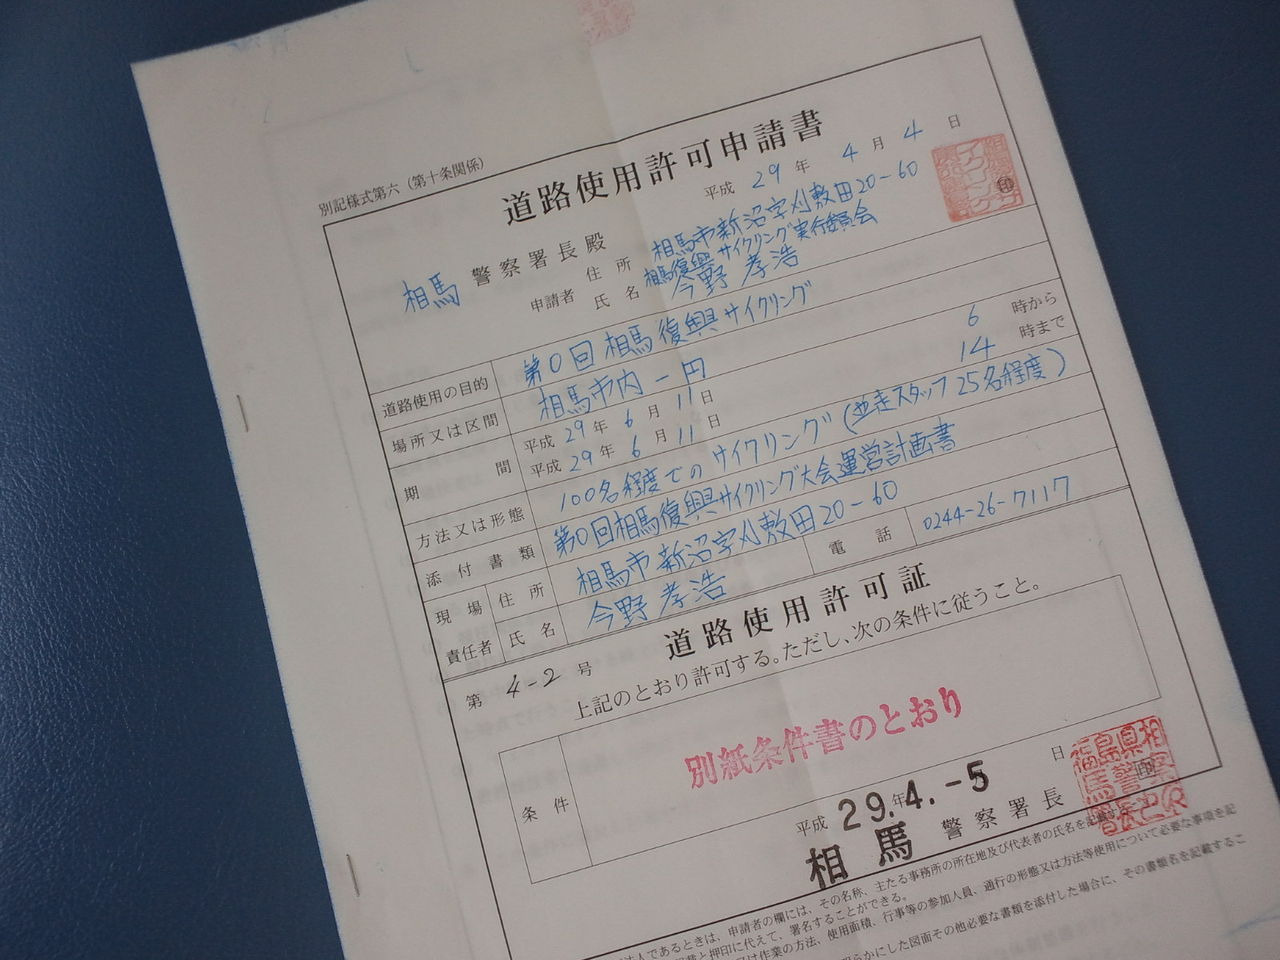 別記様式第六(第十条関係)
道路使用許可申請書
平成 29 年 4 月 4 日
相馬 警察署長殿
住所 相馬市新沼字刈敷田20-60
相馬復興サイクリング実行委員会
申請者 氏名 今野 孝浩
印
道路使用の目的 第0回相馬復興サイクリング
場所又は区間 相馬市内一円
期間 平成 29 年 6 月 11 日 6 時から
平成 29 年 6 月 11 日 14 時まで
方法又は形態 100名程度でのサイクリング(並走スタッフ25名程度)
添付書類 第0回相馬復興サイクリング大会運営計画書
現場責任者 住所 相馬市新沼字刈敷田20-60
氏名 今野 孝浩 電話 0244-26-7117
第 4-2 号
道路使用許可証
上記のとおり許可する。ただし、次の条件に従うこと。
条件 別紙条件書のとおり
平成 29.年4.-5 日
相馬 警察署長
印
人であるときは、申請者の欄には、その名称、主たる事務所の所在地及び代表者の氏名を記
載と押印に代えて、署名することができる。
は作業の方法、使用面積、行事等の参加人員、通行の形態又は方法等使用について必要な事項を記
らかにした図面その他必要な書類を添付した場合に、その書類名を記載するこ